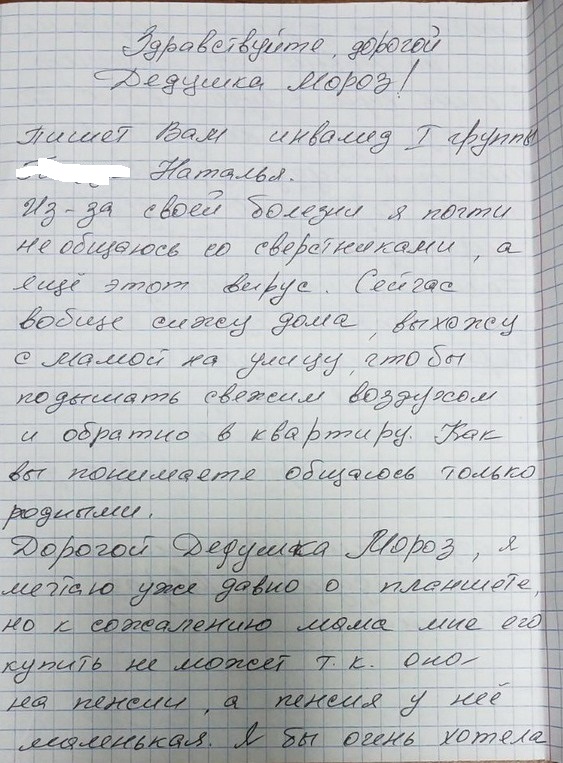 Здравствуйте, дорогой
Дедушка Мороз!
Пишет Вам инвалид I группы
Наталья.
Из-за своей болезни я почти
не общаюсь со сверстниками, а
ещё этот вирус. Сейчас
вобще сижу дома, выхожу
с мамой на улицу, чтобы
подышать свежим воздухом
и обратно в квартиру. Как
вы понимаете общаюсь только
родными.
Дорогой Дедушка Мороз, я
мечтаю уже давно о планшете,
но к сожалению мама мне его
купить не может т.к. она
на пенсии, а пенсия у неё
маленькая. Я бы очень хотела